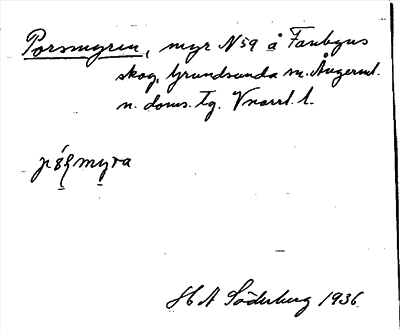 Porsmyren, myr N59 å Fanbyns
skog, Grundsunda sn. Ångerml.
n. doms. Tg. Vnorrl. l.
på̱ʂmy̱ra
H A Söderberg 1936.